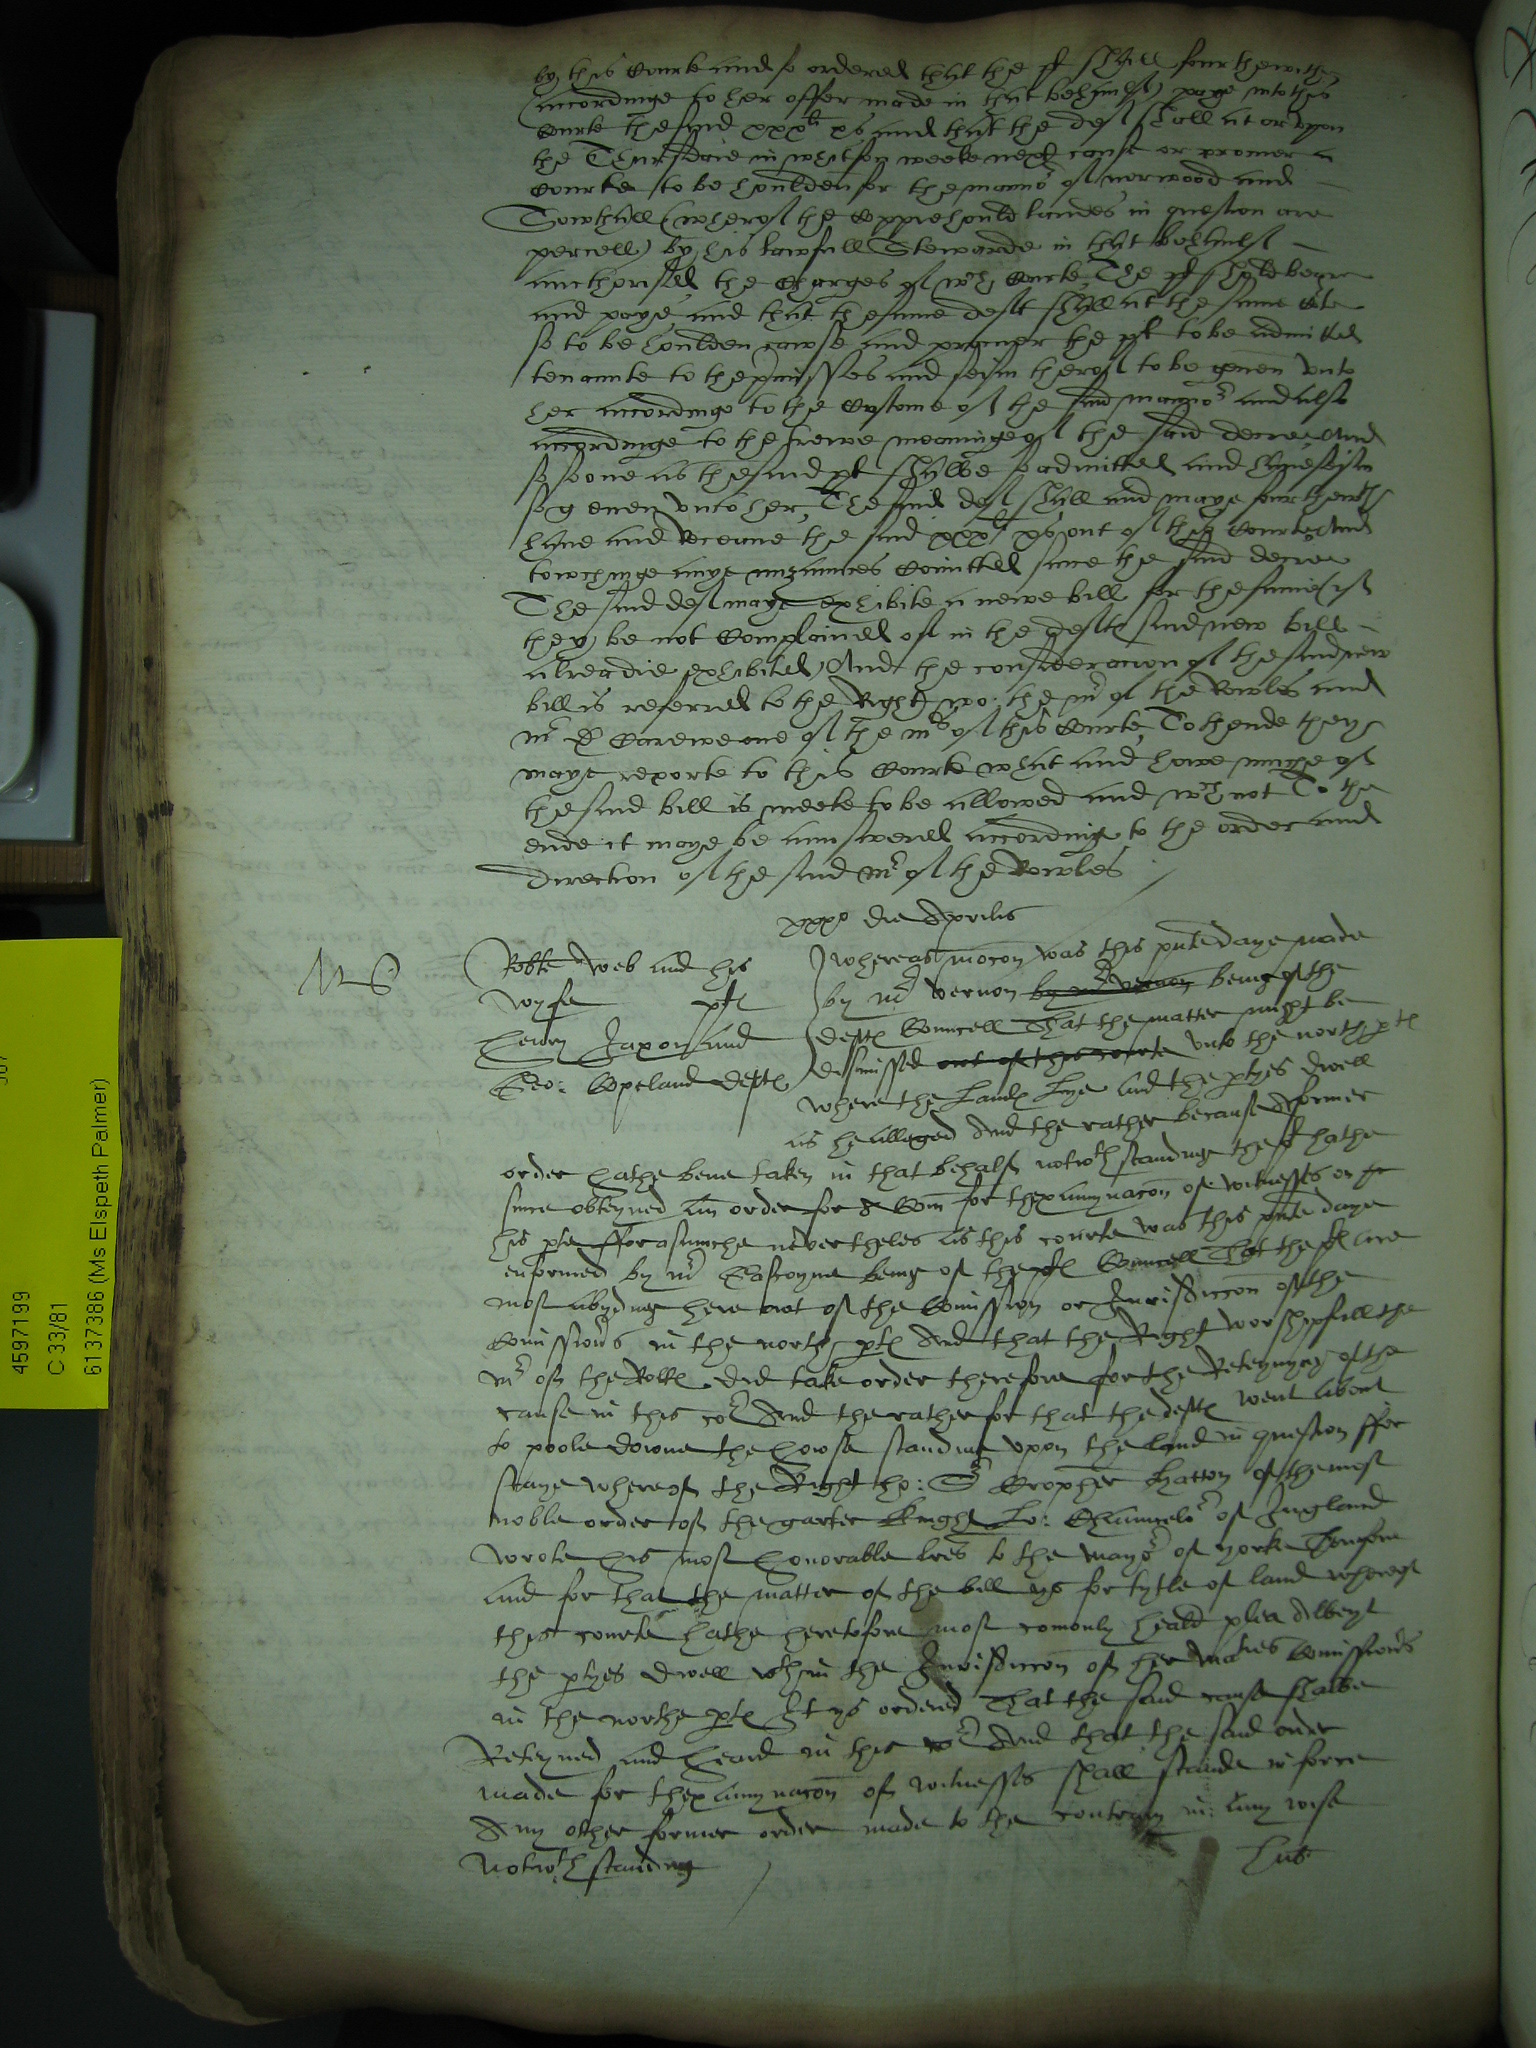 by this Courte and so ordered that the pl shall fourthewith
(accordinge to her offer made in that behalf) paye into this
Courte the said xxxli xs and that the def shall at or vpon
the Thursdaie in whitson weeke next cause or procure a
Courte to be houlden for the mannor of norwood and
Sowthall (wherof the Coppiehould landes in question are
percell) by his lawfull Stewarde in that behalf
authorised, the Charges of wch Courte The pl shall beare
and paye and that the same deft shall at the same Cte
so to be houlden cawse and procure the pl to be admitted
tenaunte to the pmisses and seisin therof to be geuen vnto
her accordinge to the Custome of the said mannor and also
accordinge to the trewe meaninge of the said decree And
so sone as the said pl shalbe so admitted and haue seisin
so geuen vnto her, The said def shall and maye fourthewth
haue and Receaue the said xxxli xs out of this Courte And
towchinge anye nuzances Comitted since the said decree
The said def maye exhibite a newe bill for the same (if
they be not Complained of in the defts said new bill
alreadie exhibited) And the consideracion of the said new
bill is referred to the Right wo: the mr of the Rowles and
mr D Carewe one of the mrs of this Courte, To thende they
maye reporte to this Courte what and howe muche of
the said bill is meete to be allowed and wch not To the
ende it maye be answered according to the order and
direction of the said mr of the Rowles
xxxo die Aprilis
Robte Web and his
wyfe plf
Henry Jaxon and
Geo: Copeland deftes
whereas mocon was this pnte daye made
by mr vernon by mr vernon being of the
deftes Councell That the matter might be
dissmissed out of this courte vnto the north ptes
where the Landes Lye and the ptyes dwell
as he alleged And the rather because A former
order hathe bene taken in that behalf notwthstanding the pl hathe
since obteyned an order for A Com for thexaminacon of witnesses on
his pte fforasmuche neuertheles as this courte was this pnte daye
enformed by mr Gascoyne being of the ples Councell That the ples are
most abyding here out of the Comission or Jurisdiccon of the
Comissiors in the north ptes And that the Right worshipfull the
mr of the Rolles did take order therefore for the Reteyning of the
cause in this cort And the rather for that the deftes went about
to poole downe the howse standing vpon the land in question ffor
staye whereof the Right ho: Sr Cropher Hatton of the most
noble order of the garter knight Lo: Chauncelor of England
wrote his most honorable lres to the mayor of yorke Therefore
and for that the matter of the bill ys for tytle of land whereof
this courte hathe heretofore most comonly heald plea Albeyt
the ptyes dwell wthin the Jurisdiccon of her maties Comissiors
in the northe ptes It ys ordered That the said cause shalbe
Reteyned and heard in this cort And that the said order
made for thexaminacon of witnesses shall stande in force
Any other former order made to the contrary in any wise
notwthstanding
4597199
C 33/81
6137386 (Ms Elspeth Palmer)